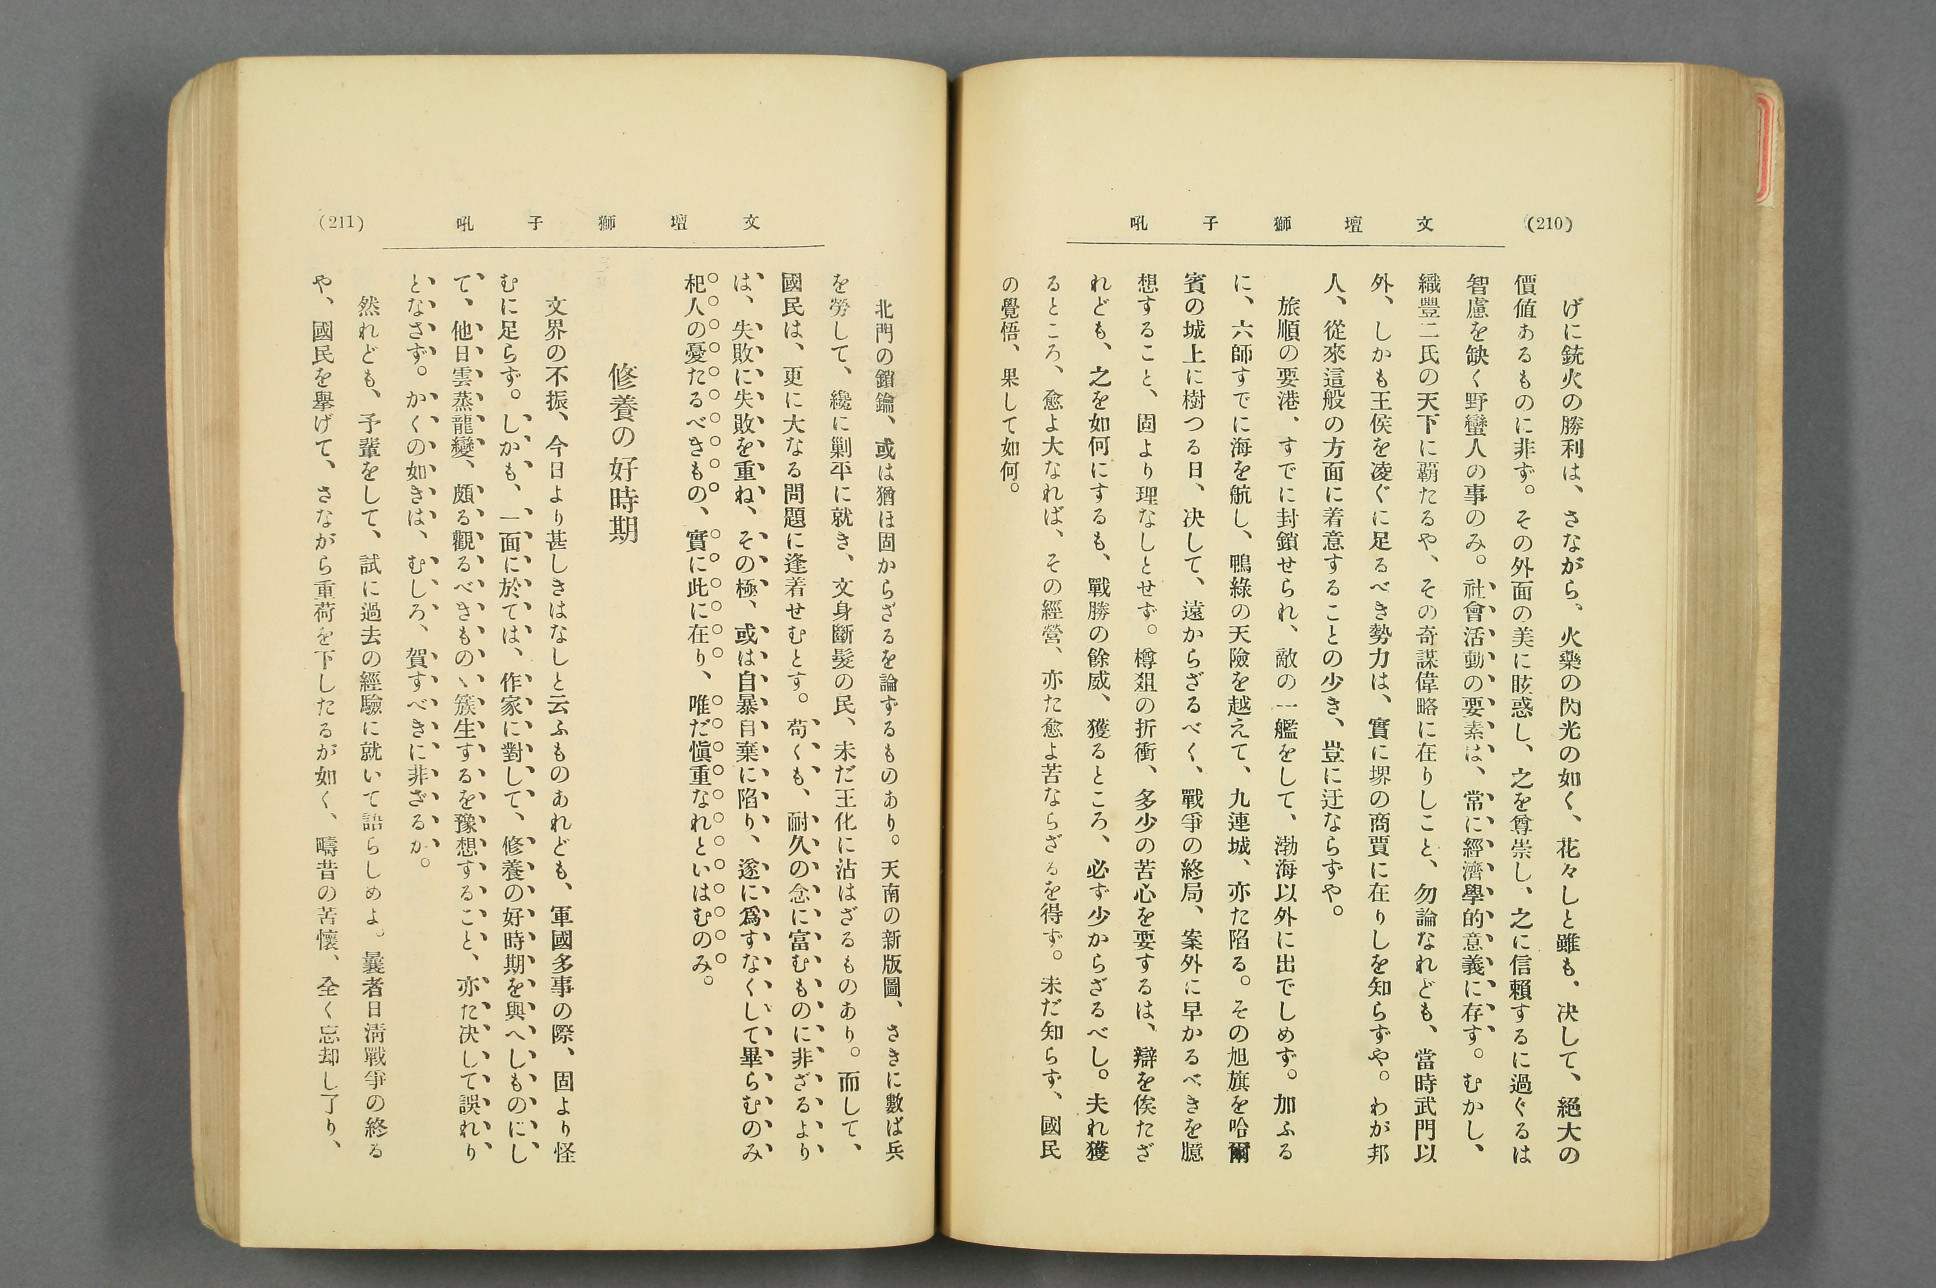 (210)
文壇獅子吼
げに銃火の勝利は、さながら、火藥の閃光の如く、花々しと雖も、决して、絕大の
價値あるものに非ず。その外面の美に眩惑し、之を尊崇し、之に信賴するに過ぐるは
智慮を缺く野蠻人の事のみ。社會活動の要素は、常に經濟學的意義に存す。むかし、
織豐二氏の天下に覇たるや、その奇謀偉略に在りしこと、勿論なれども、當時武門以
外、しかも王侯を凌ぐに足るべき勢力は、實に堺の商賈に在りしを知らずや。わが邦
人、從來這般の方面に着意することの少き、豈に迂ならずや。
旅順の要港、すでに封鎖せられ、敵の一艦をして、渤海以外に出でしめず。加ふる
に、六師すでに海を航し、鴨綠の天險を越えて、九連城、亦た陷る。その旭旗を哈爾
賓の城上に樹つる日、决して、遠からざるべく、戰爭の終局、案外に早かるべきを臆
想すること、固より理なしとせず。樽俎の折衝、多少の苦心を要するは、辯を俟たざ
れども、之を如何にするも、戰勝の餘威、獲るところ、必ず少からざるべし。夫れ獲
るところ、愈よ大なれば、その經營、亦た愈よ苦ならざるを得ず。未だ知らず、國民
の覺悟、果して如何。
文壇獅子吼
(211)
北門の鎖鑰、或は猶ほ固からざるを論ずるものあり。天南の新版圖、さきに數ば兵
を勞して、纔に剿平に就き、文身斷髮の民、未だ王化に沾はざるものあり。而して、
國民は、更に大なる問題に逢着せむとす。苟くも、耐久の念に富むものに非ざるより
は、失敗に失敗を重ね、その極、或は自暴自棄に陷り、遂に爲すなくして畢らむのみ
杞人の憂たるべきもの、實に此に在り、唯だ愼重なれといはむのみ。
修養の好時期
文界の不振、今日より甚しきはなしと云ふものあれども、軍國多事の際、固より怪
むに足らず。しかも、一面に於ては、作家に對して、修養の好時期を與へしものにし
て、他日雲蒸龍變、頗る觀るべきものゝ簇生するを豫想すること、亦た决して誤れり
となさず。かくの如きは、むしろ、賀すべきに非ざるか。
然れども、予輩をして、試に過去の經驗に就いて語らしめよ。曩者日淸戰爭の終る
や、國民を擧げて、さながら重荷を下したるが如く、疇昔の苦懷、全く忘却し了り、